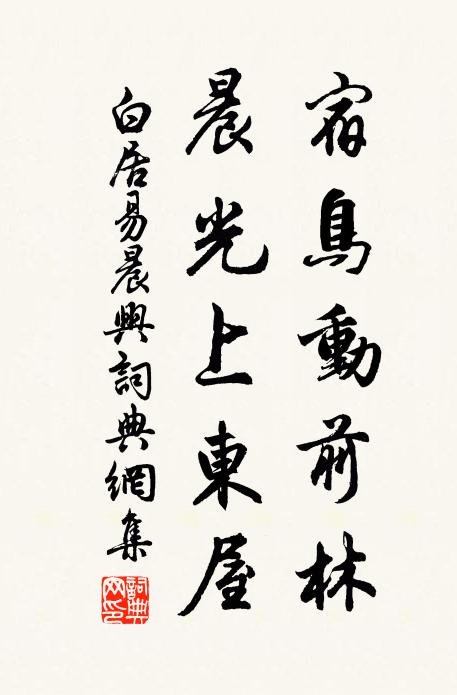 宿鳥動前林
晨光上東屋
白居易晨興詞典網集
詞典网印